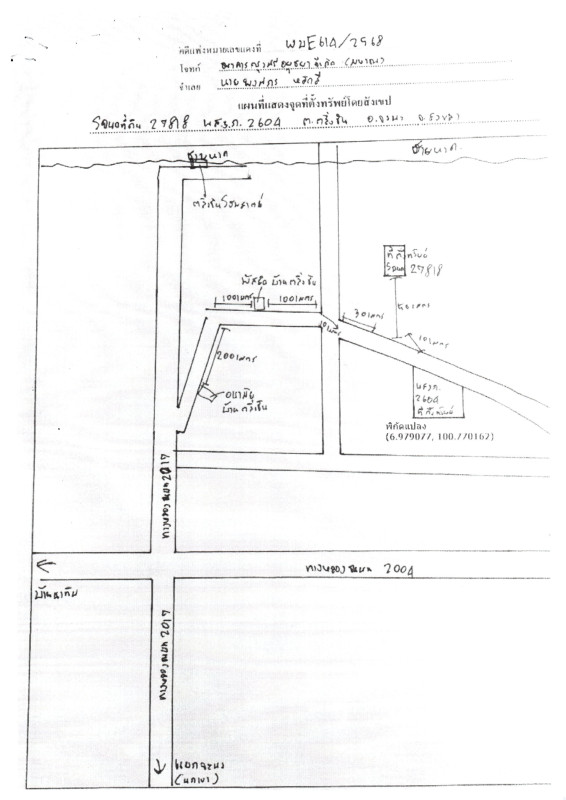 คดีแพ่งหมายเลขแดงที่ ผบE614/2568
โจทก์ ธนาคารกรุงศรีอยุธยา จำกัด (มหาชน)
จำเลย นายพงศกร
แผนที่แสดงจุดที่ตั้งทรัพย์โดยสังเขป
โฉนดที่ดิน 27818 นส3ก. 2604 ต.ตลิ่งชัน อ.จะนะ จ.สงขลา
ชายหาด
ชายหาด
ที่ตั้งทรัพย์
โฉนด 27818
บ้านตลิ่งชัน
100เมตร
100เมตร
30เมตร
50เมตร
10เมตร
10เมตร
200เมตร
อนามัย
บ้านตลิ่งชัน
นส3ก.
2604
ที่ตั้งทรัพย์
พิกัดแปลง
(6.979077, 100.770162)
ทางหลวงชนบท 2017
ทางหลวงชนบท 2004
บ้านนาทับ
ทางหลวงชนบท 2017
แยกจะนะ